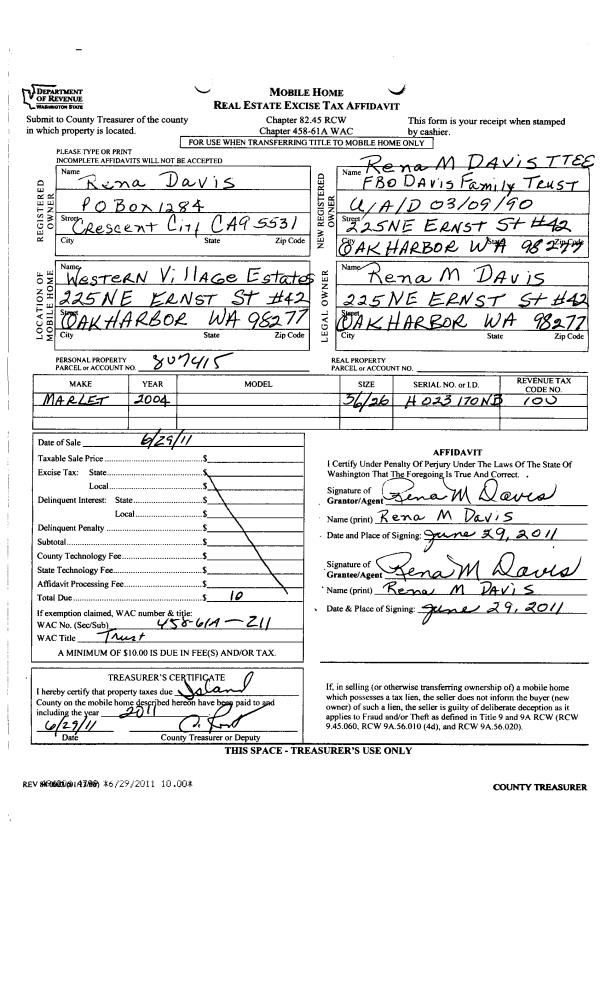 DEPARTMENT
OF REVENUE
WASHINGTON STATE
MOBILE HOME
REAL ESTATE EXCISE TAX AFFIDAVIT
Submit to County Treasurer of the county
in which property is located.
Chapter 82.45 RCW
Chapter 458-61A WAC
This form is your receipt when stamped
by cashier.
FOR USE WHEN TRANSFERRING TITLE TO MOBILE HOME ONLY
PLEASE TYPE OR PRINT
INCOMPLETE AFFIDAVITS WILL NOT BE ACCEPTED
REGISTERED OWNER
Name Rena Davis
PO Box 1284
Street Crescent City CA 95531
City State Zip Code
NEW REGISTERED OWNER
Rena M DAVIS TTEE
Name FBO DAVIS Family TRUST
U/A/D 03/09/90
Street 225 NE ERNST St #42
OAK HARBOR WA 98277
City State Zip Code
LOCATION OF MOBILE HOME
Name WESTERN Village Estates
225 NE ERNST ST #42
Street OAK HARBOR WA 98277
City State Zip Code
LEGAL OWNER
Name Rena M DAVIS
225 NE ERNST St #42
Street OAK HARBOR WA 98277
City State Zip Code
PERSONAL PROPERTY
PARCEL or ACCOUNT NO. 807415
REAL PROPERTY
PARCEL or ACCOUNT NO.
MAKE YEAR MODEL SIZE SERIAL NO. or I.D. REVENUE TAX CODE NO.
MARLET 2004 56/26 H023170NB 100
Date of Sale 6/29/11
Taxable Sale Price $
Excise Tax: State $
Local $
Delinquent Interest: State $
Local $
Delinquent Penalty $
Subtotal $
County Technology Fee $
State Technology Fee $
Affidavit Processing Fee $
Total Due $ 10
If exemption claimed, WAC number & title:
WAC No. (Sec/Sub) 458-61A-211
WAC Title Trust
A MINIMUM OF $10.00 IS DUE IN FEE(S) AND/OR TAX.
AFFIDAVIT
I Certify Under Penalty Of Perjury Under The Laws Of The State Of
Washington That The Foregoing Is True And Correct.
Signature of
Grantor/Agent Rena M Davis
Name (print) Rena M DAVIS
Date and Place of Signing: June 29, 2011
Signature of
Grantee/Agent Rena M Davis
Name (print) Rena M DAVIS
Date & Place of Signing: June 29, 2011
TREASURER'S CERTIFICATE
I hereby certify that property taxes due Island
County on the mobile home described hereon have been paid to and
including the year 2011
6/29/11
Date County Treasurer or Deputy
If, in selling (or otherwise transferring ownership of) a mobile home
which possesses a tax lien, the seller does not inform the buyer (new
owner) of such a lien, the seller is guilty of deliberate deception as it
applies to Fraud and/or Theft as defined in Title 9 and 9A RCW (RCW
9.45.060, RCW 9A.56.010 (4d), and RCW 9A.56.020).
THIS SPACE - TREASURER'S USE ONLY
REV *6/29/2011 10.00*
COUNTY TREASURER